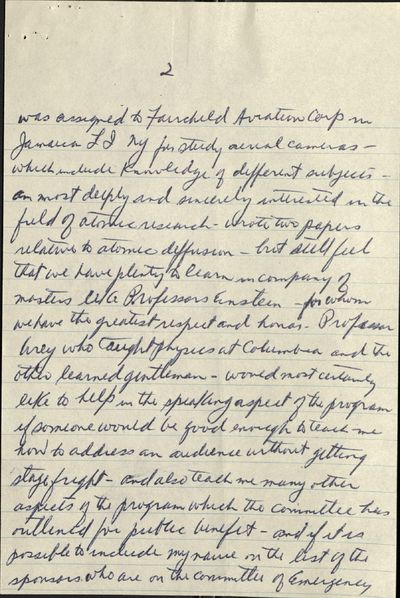 2
was assigned to Fairchild Aviation Corp in
Jamaica L I Ny for study aerial cameras -
which include Knowledge of different subjects -
am most deeply and sincerely interested in the
field of atomic research - wrote two papers
relative to atomic diffusion - but still feel
that we have plenty to learn in company of
masters like Professors Einstein - for whom
we have the greatest respect and honor. Professor
Urey who taught physics at Columbia and the
other learned gentleman - would most certainly
like to help in the speaking aspect of the program
if someone would be good enough to teach me
how to address an audience without getting
stage fright - and also teach me many other
aspects of the program which the committee has
outlined for public benefit - and if it is
possible to include my name on the list of the
sponsors who are on the committee of Emergency